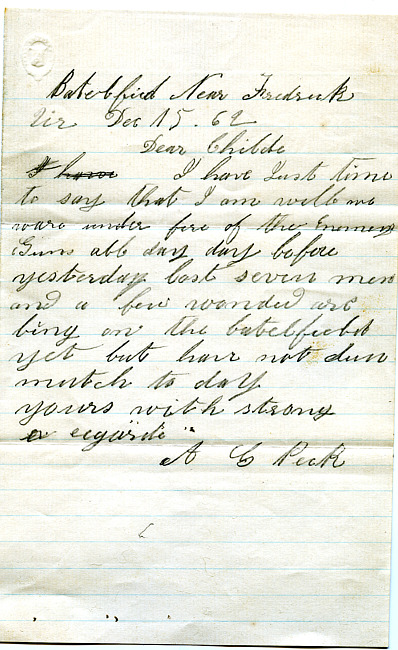 Batelfied Near Fredrick
Vir Dec 15. 62
Dear Childe
I have I have Just time
to say that I am well we
ware under fire of the Enemeys
Guns all day day before
yesterday lost seven men
and a few wonded are
ling on the batelfield
yet but have not dun
mutch to day
yours with strong
regards
A C Peck